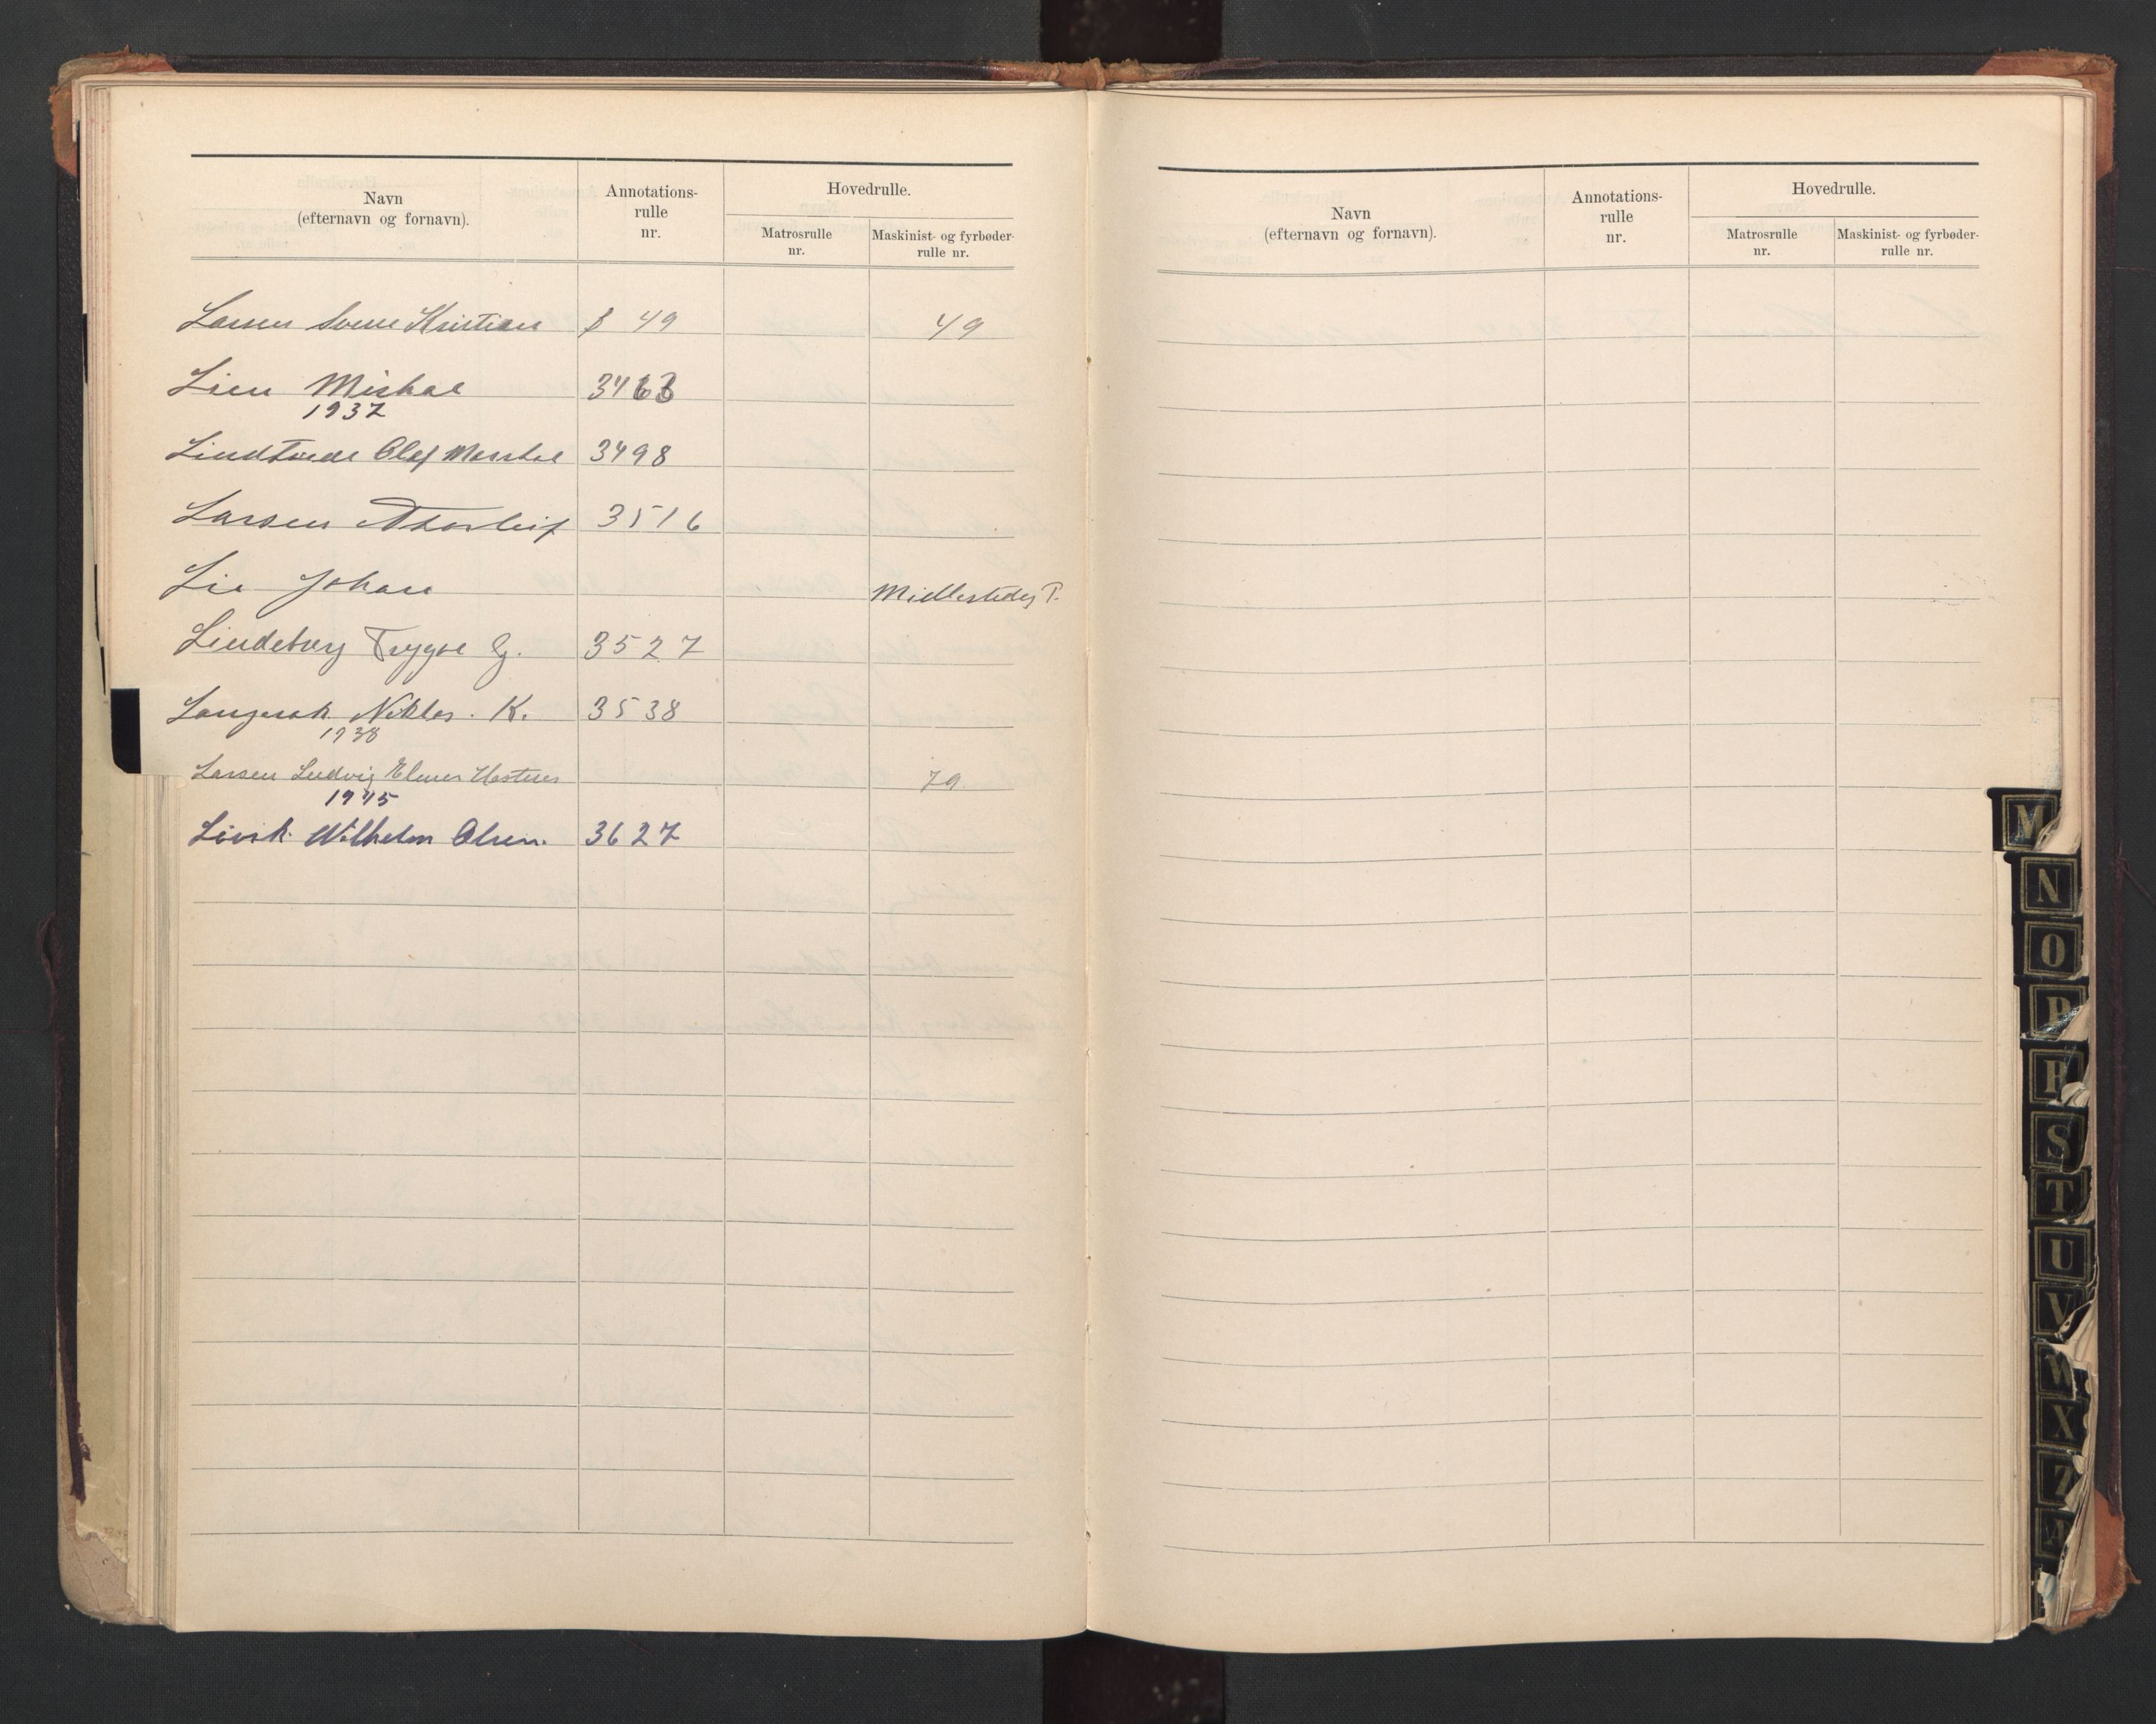 Navn
(efternavn og fornavn).
Annotations-
rulle
nr.
Hovedrulle.
Matrosrulle
nr.
Maskinist- og fyrbøder-
rulle nr.
Larsen Sverre Kristian 49 49
Lien Mikal 3463
1937
Olaf 3498
Larsen Thorleif 3516
Lie Johan Midlertidig P.
Lindeberg Trygve G. 3527
Niklas. K. 3538
1938
Larsen Ludvig Elmer 79
1945
Wilhelm Olsen. 3627
Navn
(efternavn og fornavn).
Annotations-
rulle
nr.
Hovedrulle.
Matrosrulle
nr.
Maskinist- og fyrbøder-
rulle nr.
M
N
O
P
R
S
T
U
V
W
X
Z